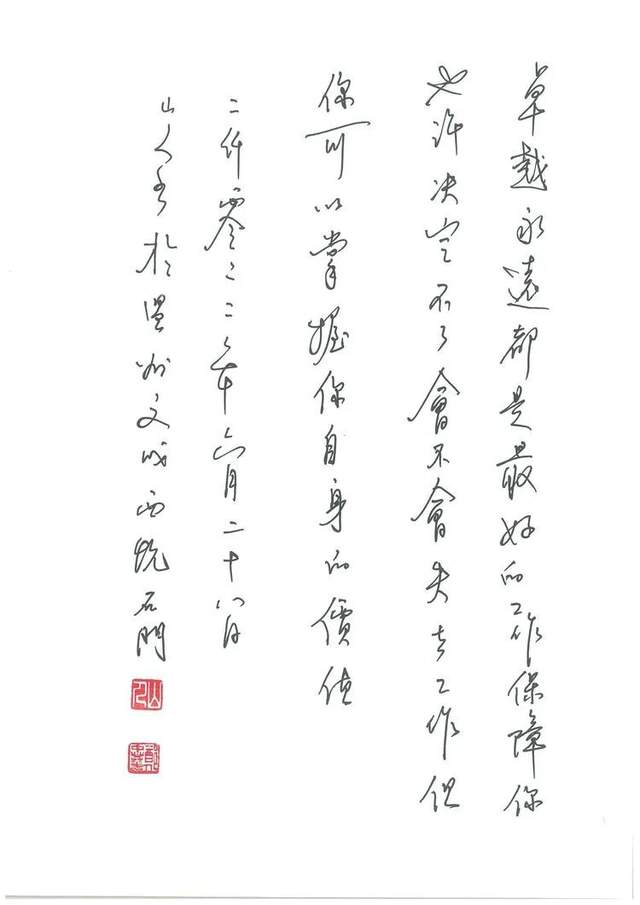 卓越永遠都是最好的工作保障你
也許决定不了會不會失去工作但
你可以掌握你自身的價值
二仟零二二年六月二十八日
山人書於温州文成西坑石門
山人